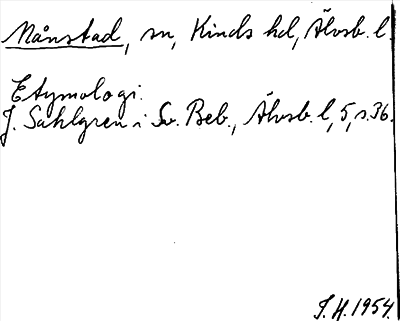 Månstad, sn, Kinds hd, Älvsb. l.
Etymologi.
J. Sahlgren i Sv. Beb., Älvsb. l, 5, s. 36.
J. H. 1954.